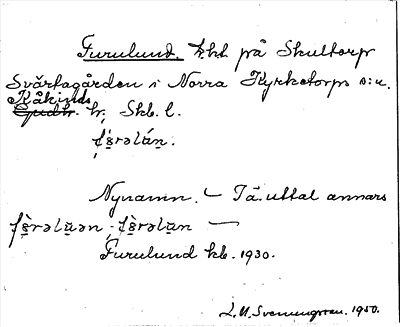 Furulund. kkt på Skultorp
Svärtagården i Norra Kyrketorps s:n.
Kåkinds
Gudh. hr, Skb. l.
fʉ̀rəlún.
Nynamn. – Tä. uttal annars
fʉ̀rəlʉən, fʉ̀rəlʉn —
Furulund kb. 1930.
1950.